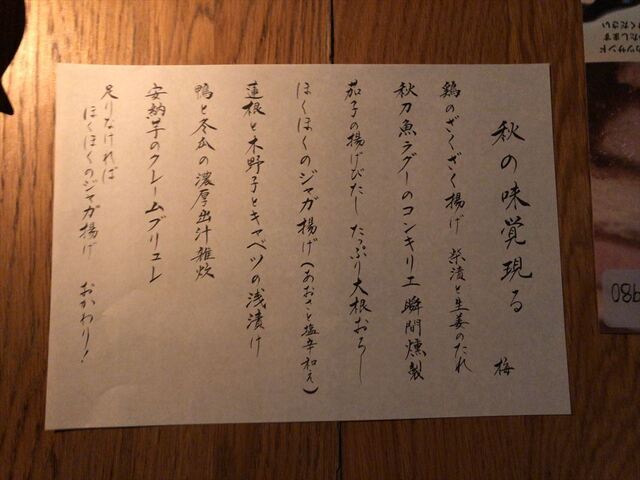 秋の味覚現る
梅
鶏のざくざく揚げ 柴漬と生姜のたれ
秋刀魚ラグーのコンキリエ 瞬間燻製
茄子の揚げびたし たっぷり大根おろし
ほくほくのジャガ揚げ(あおさと塩辛和え)
蓮根と木野子とキャベツの浅漬け
鴨と冬瓜の濃厚出汁雑炊
安納芋のクレームブリュレ
足りなければ
ほくほくのジャガ揚げ おかわり!
カツサンド
いたします
ください
980